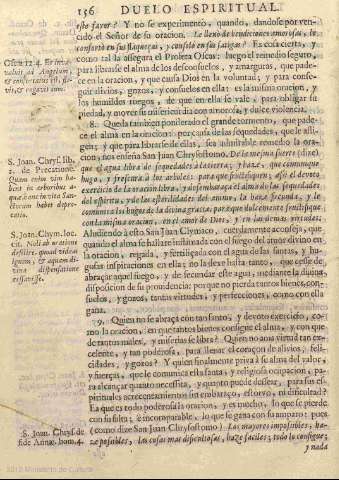 156 DUELO ESPIRITUAL.
este favor? Y no se experimentò, quando, dandose por ven-
cido el Señor de su oracion, le llenò de bendiciones amorosas, le
confortò en sus flaquezas, y consolò en sus fatigas? Es cosa cierta, y
como tal la assegura el Profeta Oseas: luego el remedio seguro,
para librarse el alma de los desconsuelos, y amarguras, que pade-
ce en la oracion, y que causa Dios en la voluntad; y para conse-
guir alivios, gozos, y consuelos en ella: es la misma oracion, y
los humildes ruegos, de que en ella se vale, para obligar su
piedad, y mover su misericordia con amorosa, y dulce violencia.
Oseæ 12. 4. Et invaluit ad Angelum, et confortatus est, flevit, & rogavit eum.
8. Queda tambien ponderado el grande tormento, que pade-
ce el alma en la oracion: por causa de las sequedades, que le afli-
gen; y que para librarse de ellas, sea admirable remedio la ora-
cion, nos enseña San Juan Chrysostomo. De la misma suerte (dize)
que el agua libra de sequedades à la tierra, y haze, que comunique
jugo, y frescura à los arboles: para que fructifiquen; assi el devoto
exercicio de la oracion libra, y desembaraza el alma de las sequedades
del espiritu, y de esterilidades del animo, la haze fecunda, y le
comunica los jugos de la divina gracia: por que dulcemente fructifique
con la misma oracion, en el amor de Dios, y en las demas virtudes.
S. Joan. Chrys. lib. 1. de Precatione. Quam enim vim habent in arboribus aquæ eam in vita Sanctorum habet deprecatio.
Aludiendo à esto San Juan Clymaco, cuerdamente aconseja, que
quando el alma se hallare inflamada con el fuego del amor divino en
la oracion, regada, y fertilizada con el agua de las santas, y au-
gustas inspiraciones en ella; no la dexe hasta tanto, que cesse de
abraçar aquel fuego, y de fecundar este agua, mediante la divina
disposicion de su providencia: porque no pierda tantos bienes, con-
suelos, y gozos, tantas virtudes, y perfecciones, como con ella
gana.
9. Quien no se abraça con tan santo, y devoto exercicio, co-
mo la oracion, en que tantos bienes consigue el alma, y con que
de tantos males, y miserias se libra? Quien no ama virtud tan ex-
celente, y tan poderosa, para llenar el coraçon de alivios, feli-
cidades, y gozos? Y quien finalmente priva à su alma del valor,
y fuerças, que le comunica esta santa, y religiosa ocupacion, pa-
ra alcançar quanto necessita, y quanto puede dessear, para sus es-
pirituales acrecentamientos sin embarazo, estorvo, ni dificultad?
Ea que es todo poderosa la oracion, y es mucho, lo que se pierde
con su falta; è incomparable, lo que se gana con su amparo: pues
(como dize San Juan Chrysostomo) Las mayores impossibles, ha-
ze possibles, las cosas mas dificultosas, haze faciles; todo lo consigue;
S. Joan. Chrys. de fide Annæ, hom. 4.
y nada
2010 Ministerio de Cultura